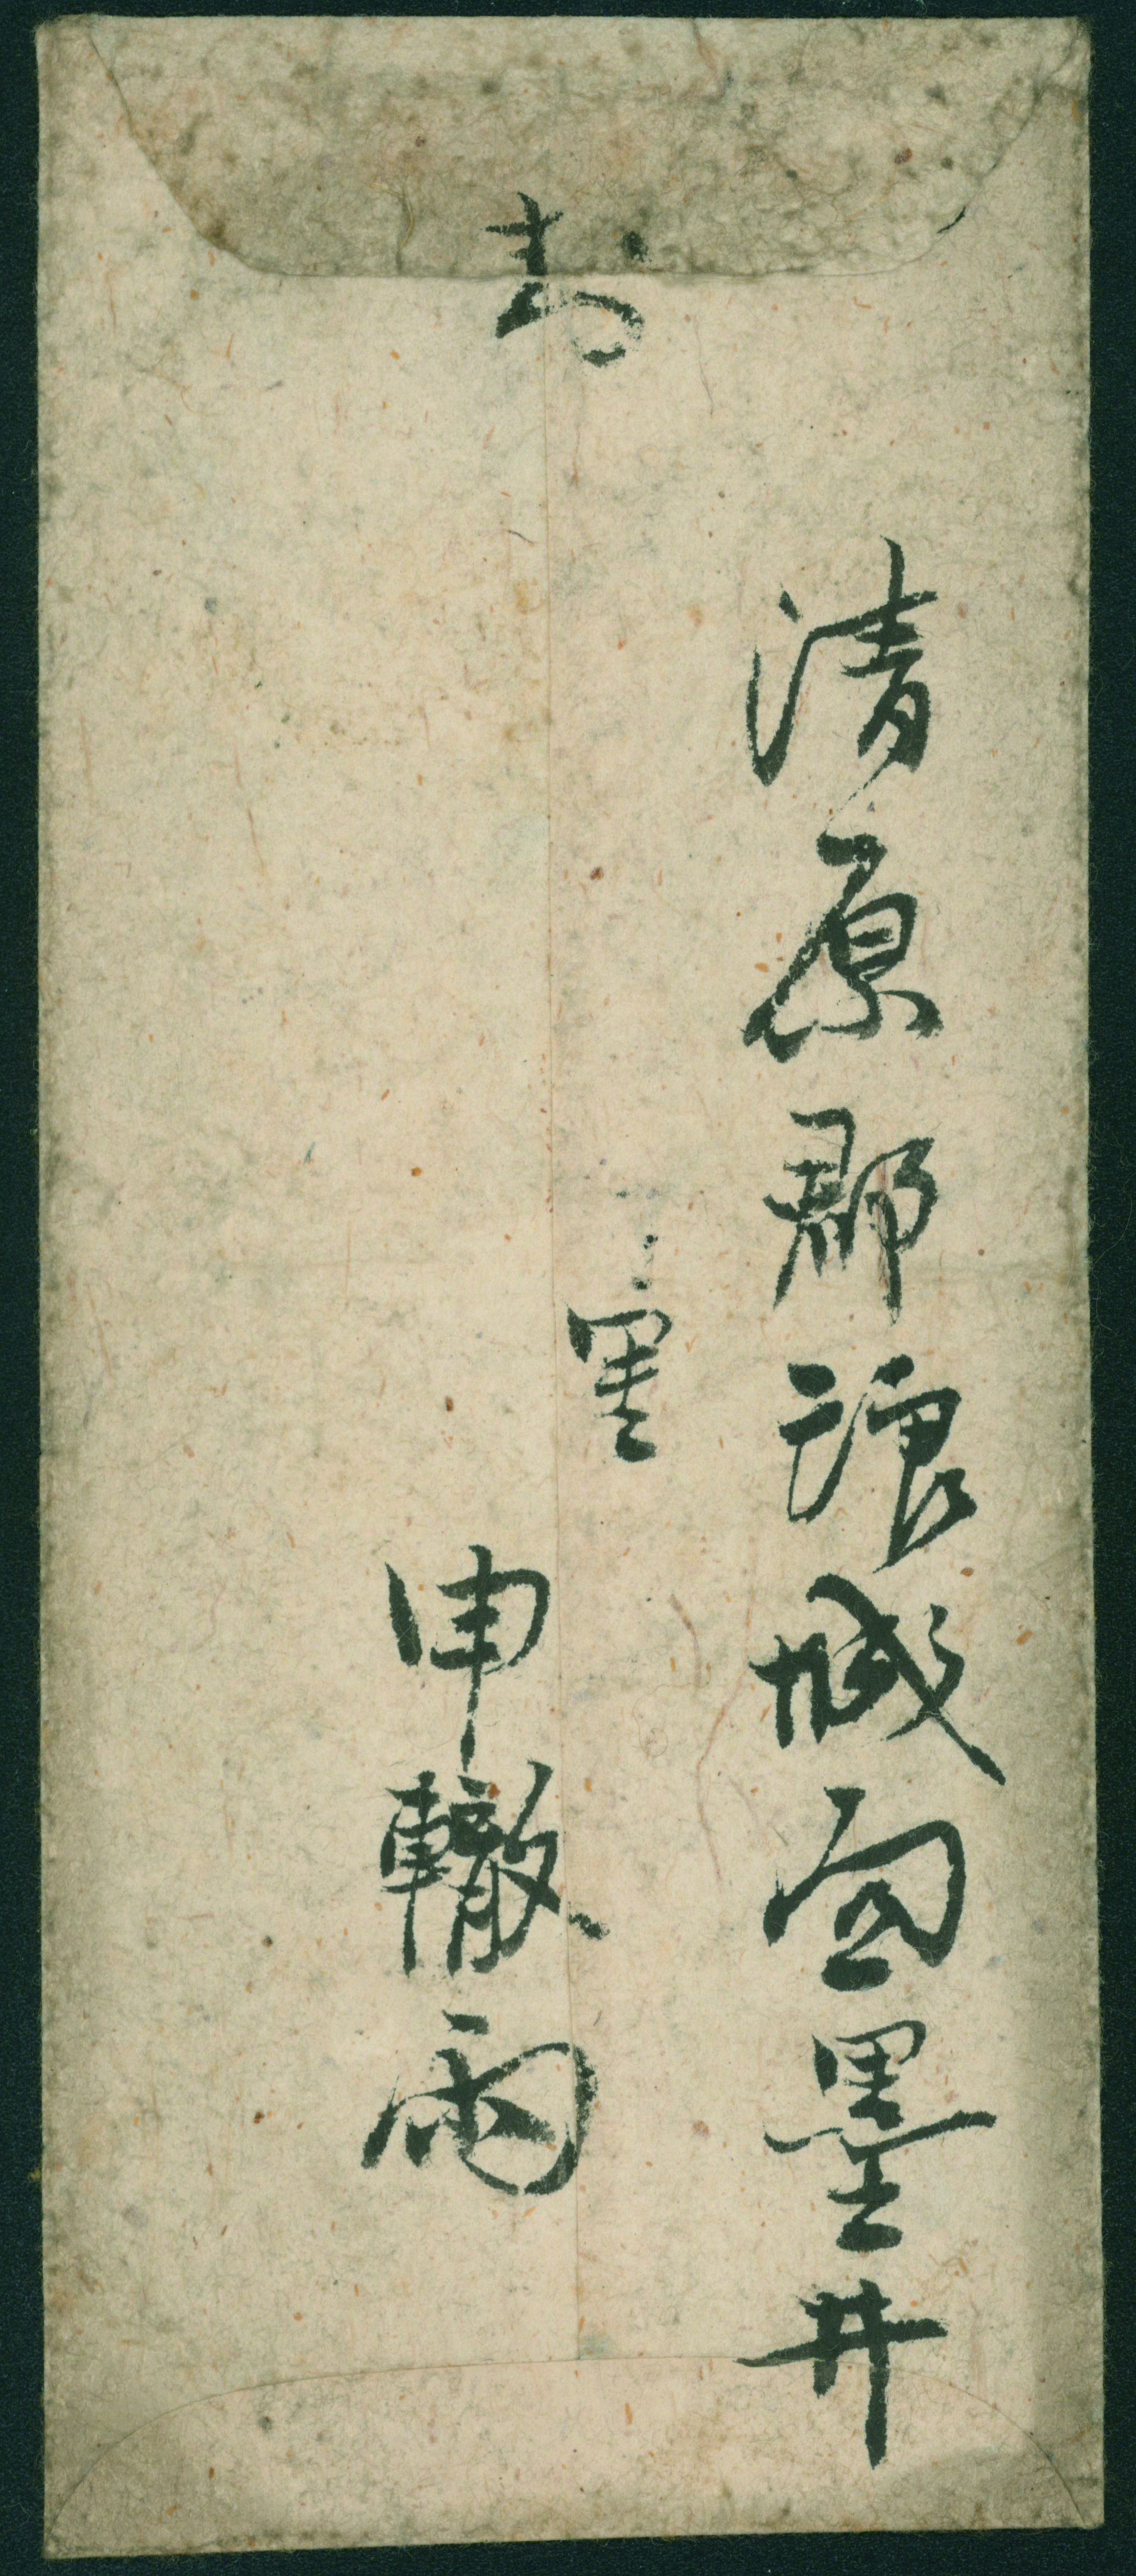 封
清原郡琅城面墨井
里
申轍雨